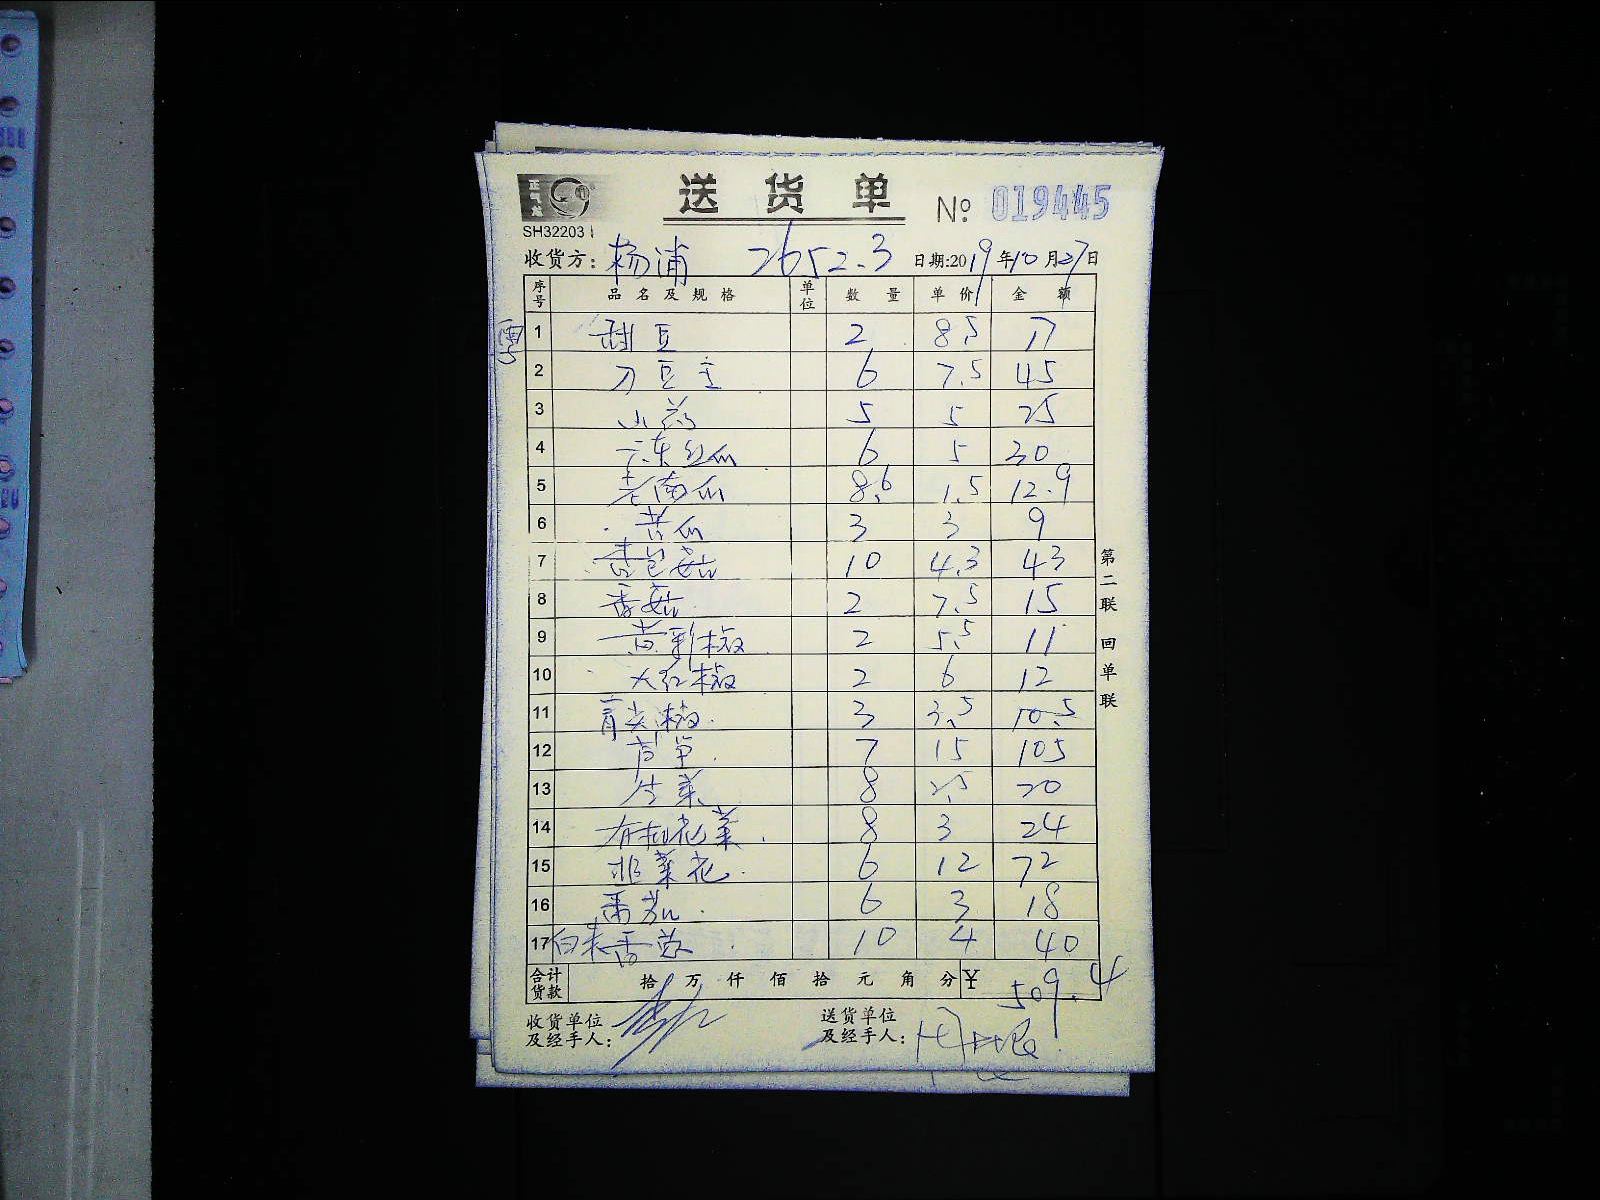 送货单 № 019445
SH32203
收货方：杨浦 2652.3 日期:2019年10月27日
序号 品名及规格 单位 数量 单价 金额
1 甜豆 2 8.5 17
2 刀豆 6 7.5 45
3 山药 5 5 25
4 丝瓜 6 5 30
5 老南瓜 8.6 1.5 12.9
6 苦瓜 3 3 9
7 杏包菇 10 4.3 43
8 香菇 2 7.5 15
9 黄彩椒 2 5.5 11
10 大红椒 2 6 12
11 青尖椒 3 3.5 10.5
12 茼笋 7 15 105
13 生菜 8 2.5 20
14 有机花菜 8 3 24
15 韭菜花 6 12 72
16 番茄 6 3 18
17 白 10 4 40
合计货款 拾万仟佰拾元角分 ¥ 509.4
收货单位及经手人：
送货单位及经手人：
第二联 回单联